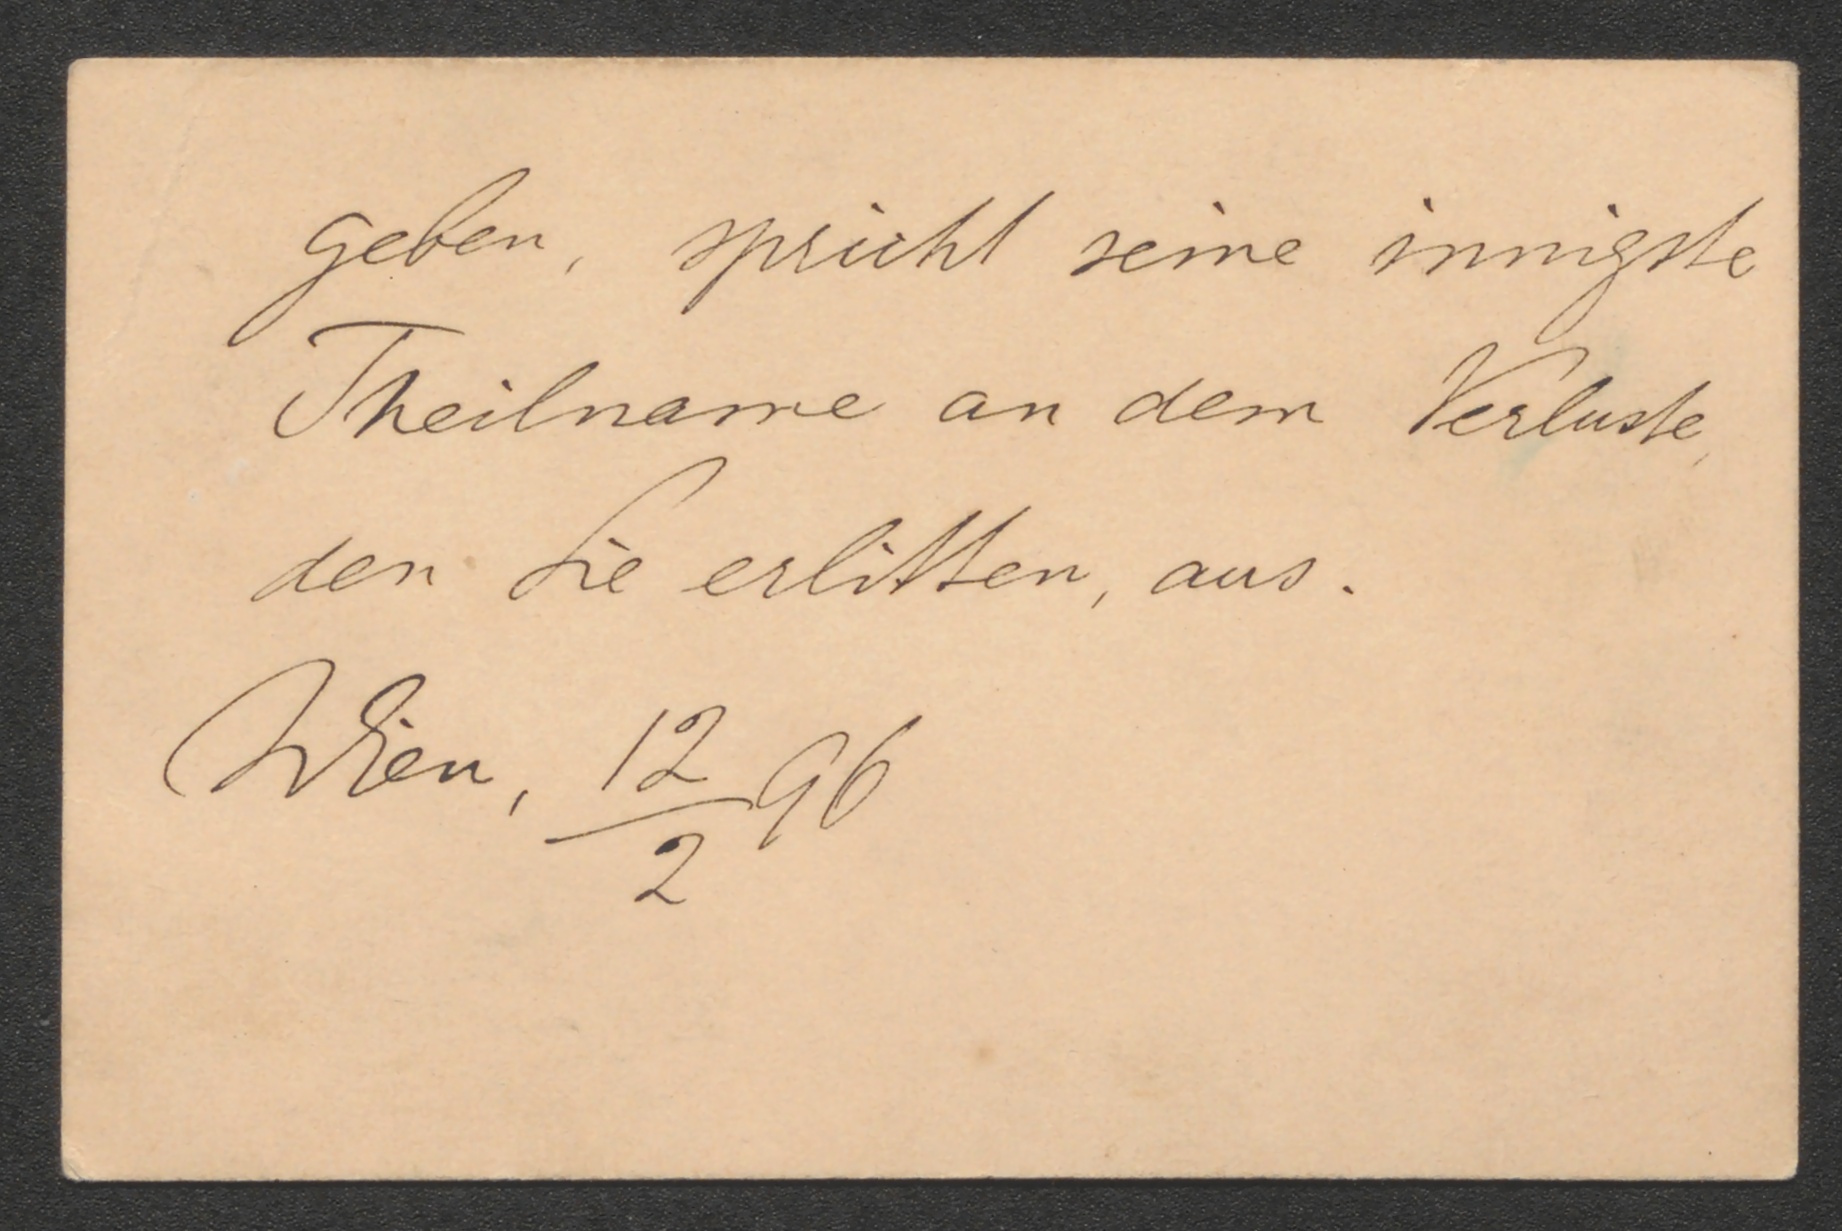 geben, spricht seine innigste
Theilname an dem Verluste,
den Sie erlitten, aus.
Wien, 12/2 96